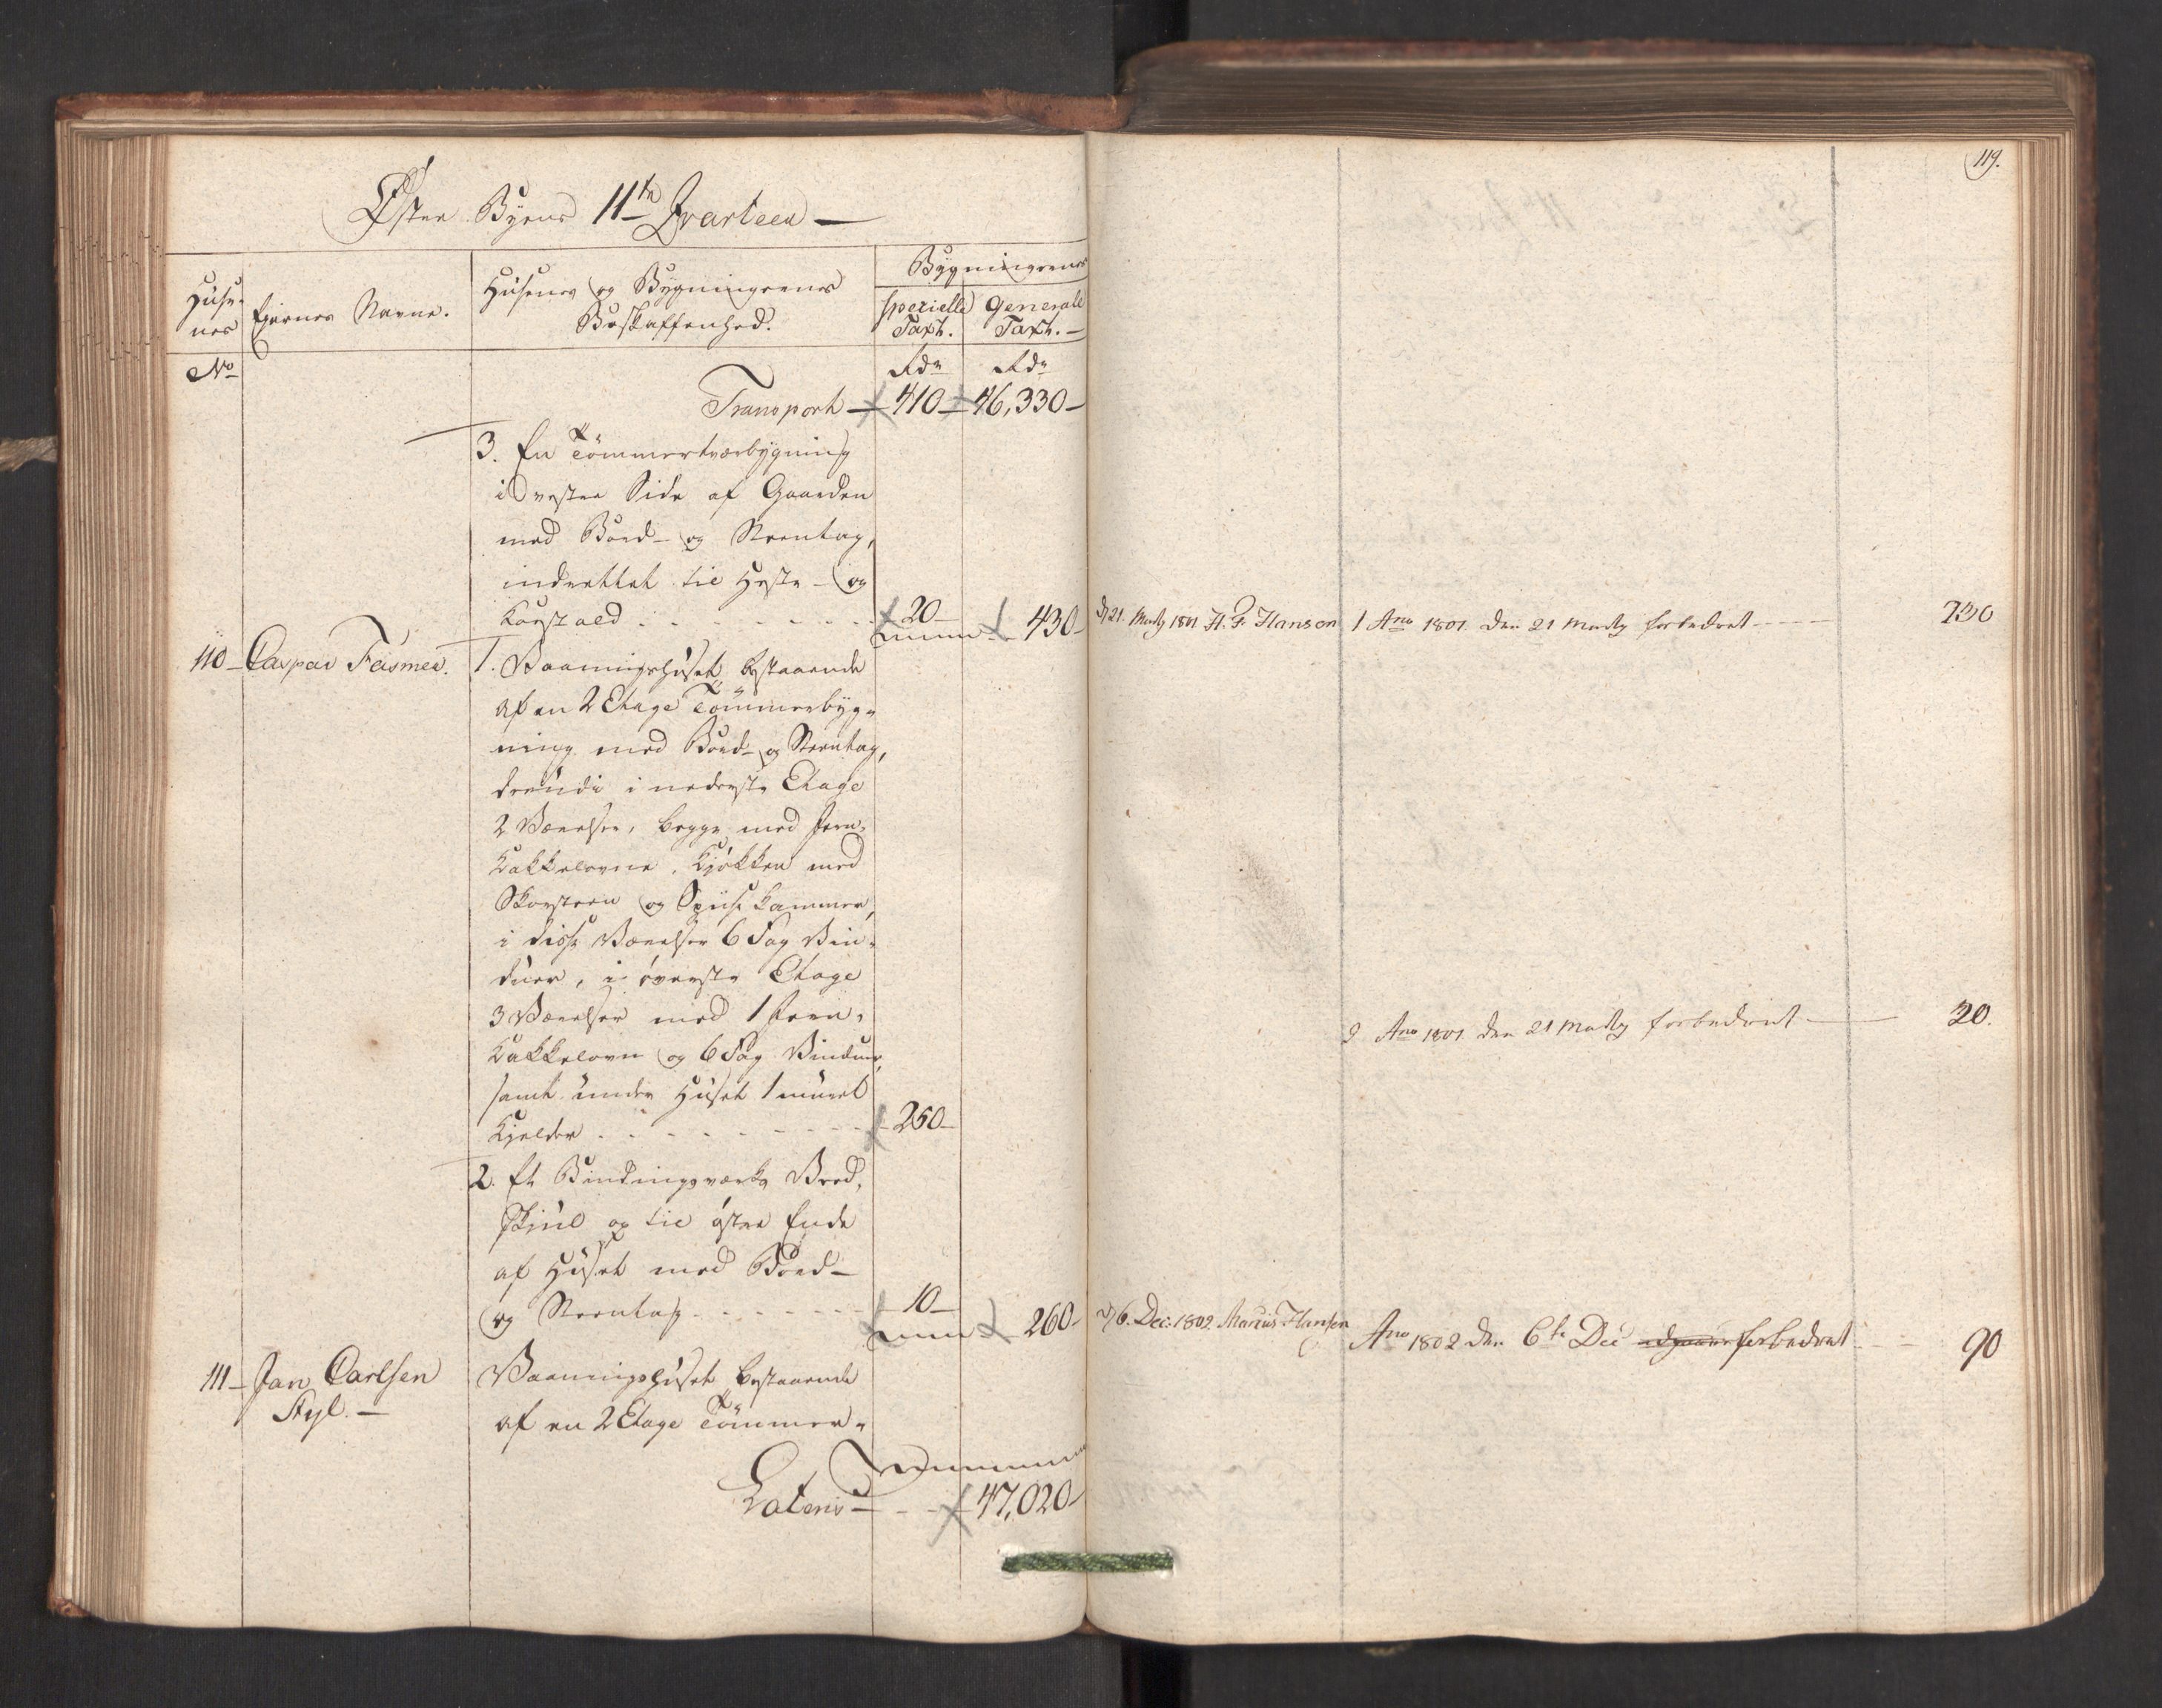 Øster Byens 11te Qvarteer
Huse-
nes
Eyernes Navne.
Husenes og Bygningernes
Beskaffenhed.
Bygningernes
specielle
Taxt.
Generale
Taxt.
No
Rdr
Rdr
Transport 410 46,330
3. En Tömmertværbygning
i vestre Side af Gaarden
med Bord- og Steentag,
indrettet til Heste- og
Korstald 20
430
110 Caspar Fasmer.
1. Vaaningshuset, bestaaende
af en 2 Etage Tömmerbyg-
ning med Bord- og Steentag,
desudi i nederste Etage
2 Værelser, begge med Jern-
Kakkelovne, Kjökken med
Skorsteen og Spiisekammer,
i disse Værelser 6 Fag Vin-
duer, i överste Etage
3 Værelser med 1 Jern-
Kakkelovn og 6 Fag Vinduer,
samt under Huset 1 muret
Kjelder 250
2. Et Bindingsværks Bred-
skjul op til østre Ende
af Huset med Bord-
og Steentag 10
260
111 Jan Carlsen
Styl.
Vaaningshuset bestaaende
af en 2 Etage Tömmer-
Lateris 47,020
119.
d 21. Martz 1801 H. F. Hanson
1 Ano 1801. den 21 Martz forbedret 730
2 Ano 1801 den 21 Martz forbedret 20.
d 6. Dec: 1802 Marcus Hansen
Ano 1802 den 6te Dec forbedret 90